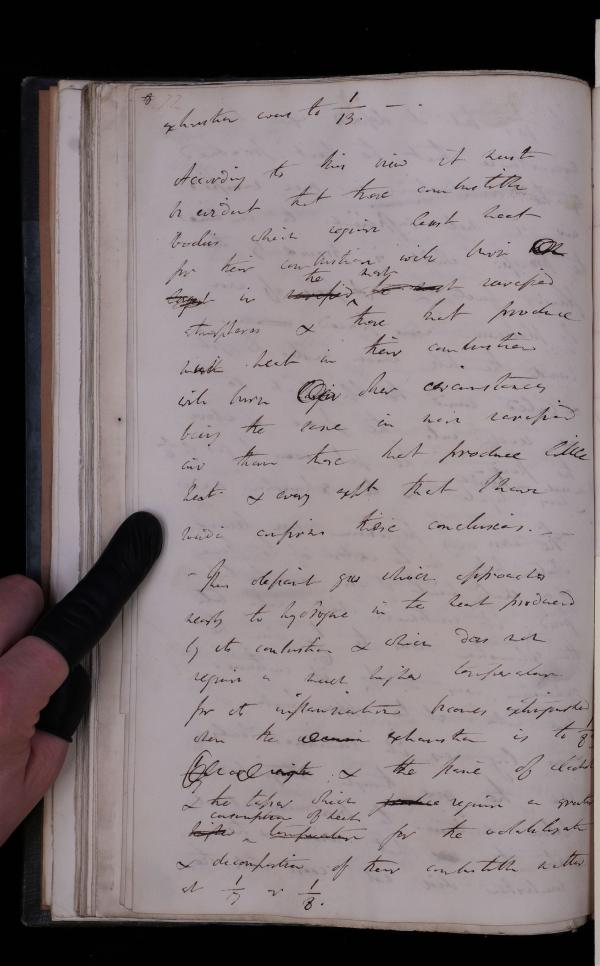 72
exhaustion was to 1/13. —
According to this view it must
be evident that those combustible
bodies which require least heat
for their combustion will burn
in the most rarefied
atmospheres & those that produce
heat in their combustion
will burn other circumstances
being the same in more rarefied
air than those that produce little
heat & every expt that I have
made confirms these conclusions. —
— Thus olefiant gas which approaches
nearly to hydrogene in the heat produced
by its combustion & which does not
require a much higher temperature
for its inflammation becomes extinguished
when the exhaustion is to
& the flame of alcohol
& the taper which require a greater
consumption of heat
for the volatilization
& decomposition of their combustible matter
at 1/7 or 1/8.